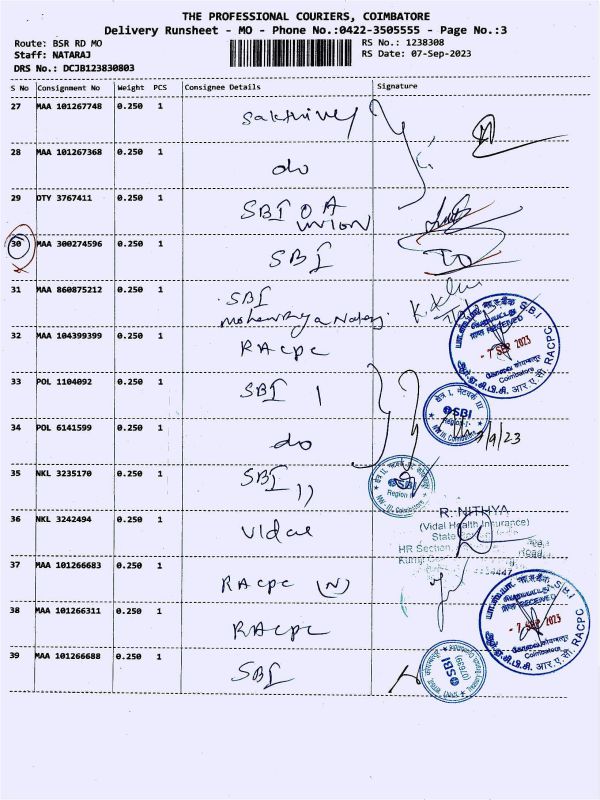 THE PROFESSIONAL COURIERS, COIMBATORE
Delivery Runsheet - MO - Phone No.:0422-3505555 - Page No.:3
Route: BSR RD MO
Staff: NATARAJ
DRS No.: DCJB123830803
RS No.: 1238308
RS Date: 07-Sep-2023
S No Consignment No Weight PCS Consignee Details Signature
27 MAA 101267748 0.250 1 Sakthivel
28 MAA 101267368 0.250 1 do
29 DTY 3767411 0.250 1 SBI O A
UNION
30 MAA 300274596 0.250 1 SBI
31 MAA 860875212 0.250 1 SBI
32 MAA 104399399 0.250 1 RACPC
33 POL 1104092 0.250 1 SBI I
34 POL 6141599 0.250 1 do
35 NKL 3235170 0.250 1 SBI II
36 NKL 3242494 0.250 1 Vidal
37 MAA 101266683 0.250 1 RACPC (N)
38 MAA 101266311 0.250 1 RACPC
39 MAA 101266688 0.250 1 SBI
S.B.I
RECEIVED
- 7 SEP 2023
Coimbatore
आर.ए.सी RACPC
क्षेत्र I, नेटवर्क III
SBI
Region-I
NW III, Coimbatore
/9/23
SBI
Region II
NW III, Coimbatore
R. NITHYA
(Vidal Health Insurance)
HR Section
Road,
S.B.I
RECEIVED
- 7 SEP 2023
Coimbatore
आर.ए.सी RACPC
SBI